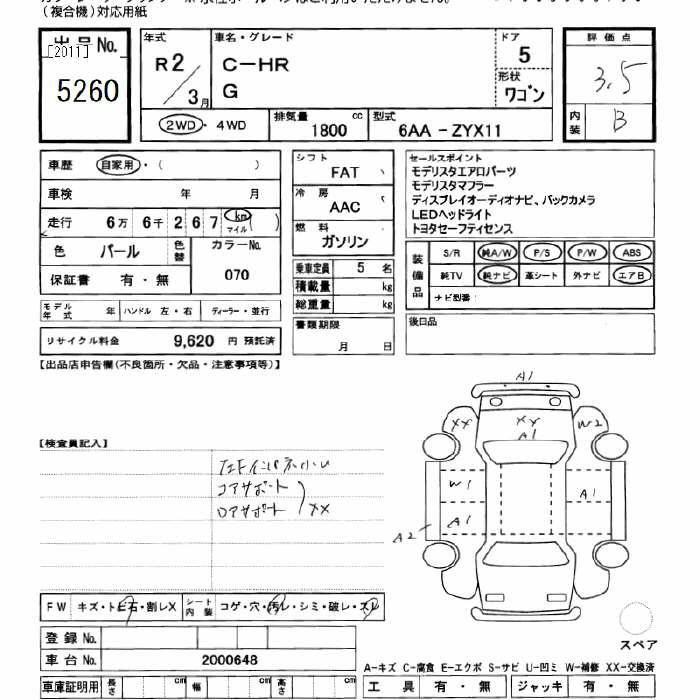 (複合機)対応用紙
出品No.
[2011]
5260
年式
R2/3月
車名・グレード
C-HR
G
ドア
5
形状
ワゴン
評価点
3.5
内装
B
2WD・4WD
排気量
1800 cc
型式
6AA-ZYX11
車歴 自家用・( )
車検 年 月
走行 6万 6千 2 6 7 km マイル
色 パール 色替
カラーNo.
070
保証書 有・無
シフト
FAT
冷房
AAC
燃料
ガソリン
乗車定員 5 名
積載量 kg
総重量 kg
書類期限
月 日
セールスポイント
モデリスタエアロパーツ
モデリスタマフラー
ディスプレイオーディオナビ、バックカメラ
LEDヘッドライト
トヨタセーフティセンス
装備品
S/R 純A/W P/S P/W ABS
純TV 純ナビ 革シート 外ナビ エアB
ナビ型番:
後日品
モデル年式 年 ハンドル 左・右 ディーラー・並行
リサイクル料金 9,620 円 預託済
【出品店申告欄(不良箇所・欠品・注意事項等)】
【検査員記入】
コアサポート
ロアサポート
XX
A1
XX
XY
A1
W2
W1
A1
A1
A2
FW キズ・トビ石・割レX
シート内装 コゲ・穴・汚レ・シミ・破レ・スレ
スペア
登録No.
車台No. 2000648
車庫証明用 長さ cm 幅 cm 高さ cm
A-キズ C-腐食 E-エクボ S-サビ U-凹ミ W-補修 XX-交換済
工具 有・無 ジャッキ 有・無